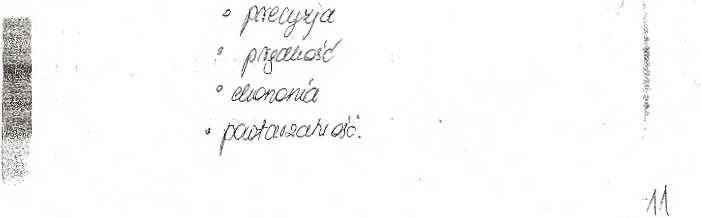 ° precyzja
° przydatność
° ekonomia
• powtarzalność.
11